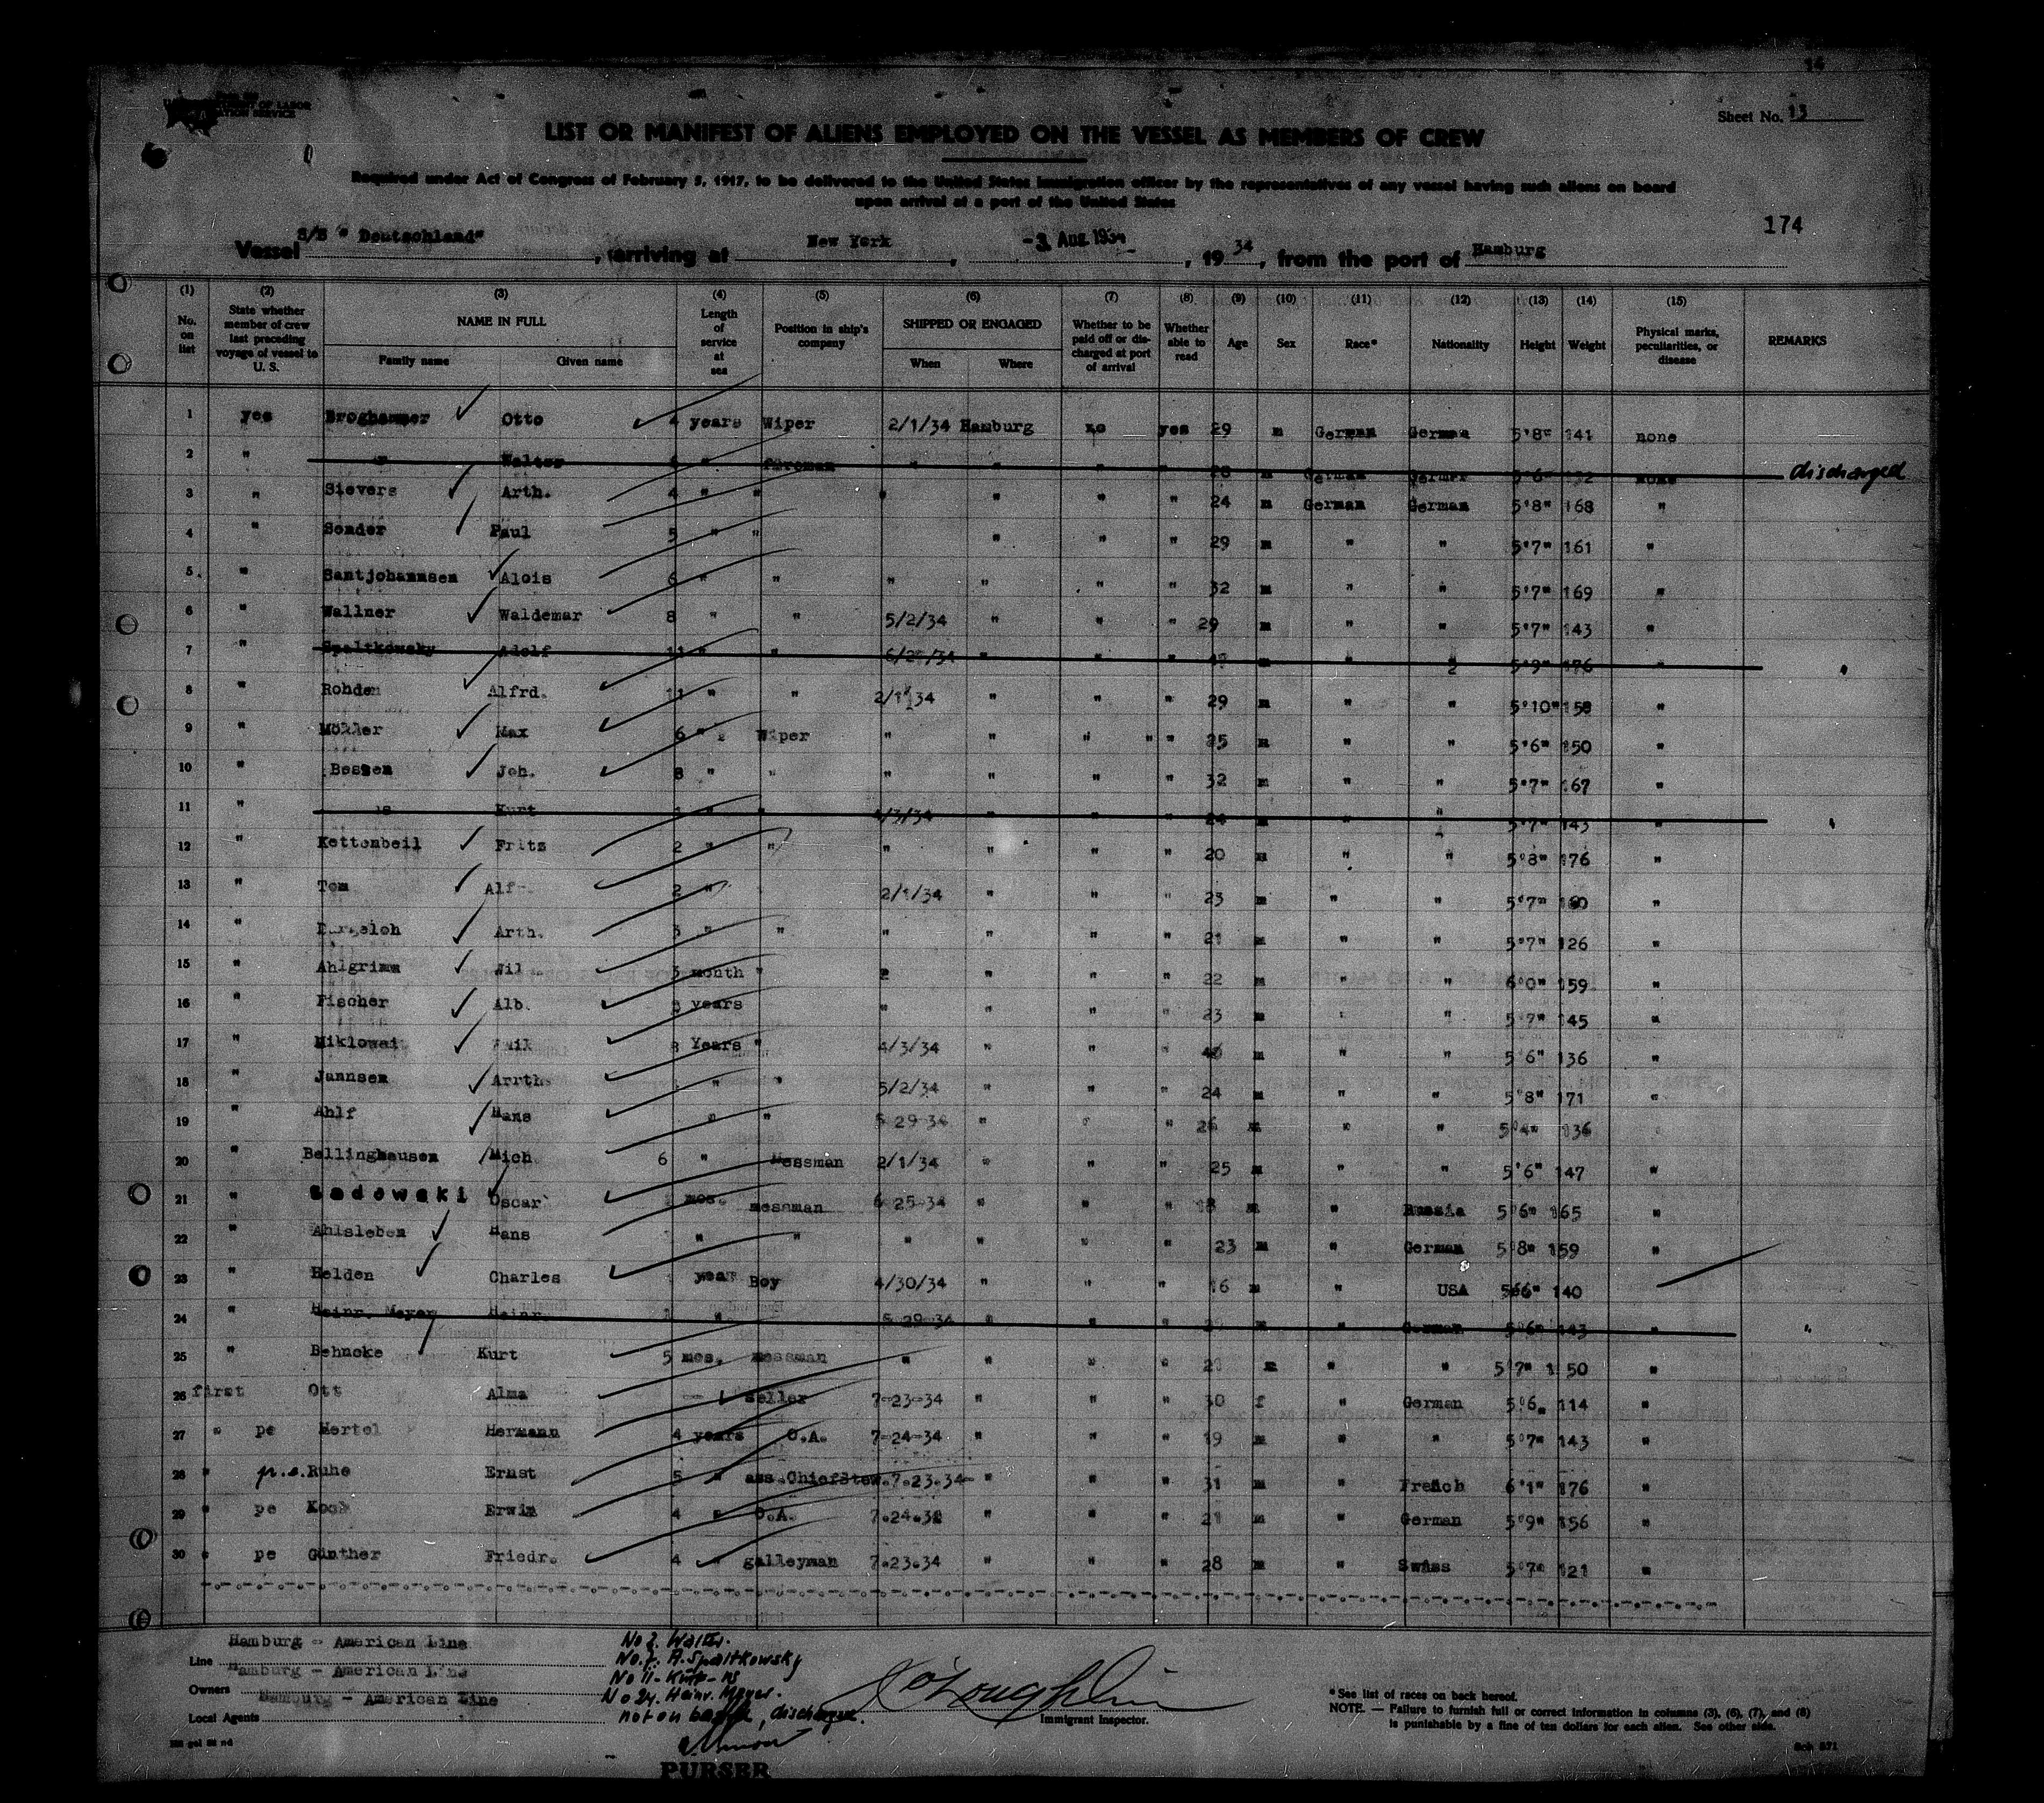 14
Sheet No. 13
LIST OR MANIFEST OF ALIENS EMPLOYED ON THE VESSEL AS MEMBERS OF CREW
Required under Act of Congress of February 5, 1917, to be delivered to the United States immigration officer by the representatives of any vessel having such aliens on board
upon arrival at a port of the United States
174
Vessel S/S " Deutschland", arriving at New York, -3 Aug 1934, 19 34, from the port of Hamburg
(1) (2) (3) (4) (5) (6) (7) (8) (9) (10) (11) (12) (13) (14) (15)
No. on list State whether member of crew last preceding voyage of vessel to U. S. NAME IN FULL Family name Given name Length of service at sea Position in ship's company SHIPPED OR ENGAGED When Where Whether to be paid off or discharged at port of arrival Whether able to read Age Sex Race* Nationality Height Weight Physical marks, peculiarities, or disease REMARKS
1 yes Broghammer Otto 4 years Wiper 2/1/34 Hamburg no yes 29 m German German 5'8" 141 none
2 " Walter " " " " " 28 m German German 5'6" none discharged
3 " Sievers Arth. 4 " " " " " " 24 m German German 5'8" 168 "
4 " Sonder Paul 5 " " " " " 29 m " " 5'7" 161 "
5 " Santjohannsen Alois 6 " " " " " " 32 m " " 5'7" 169 "
6 " Wallner Waldemar 8 " " 5/2/34 " " " 29 m " " 5'7" 143 "
7 " Spaltkowsky Adolf 11 " " " " " m " " 5'9" 176 "
8 " Rohden Alfrd. 11 " " 2/1/34 " " " 29 m " " 5'10" 158 "
9 " Max 6 " Wiper " " " " 25 m " " 5'6" 150 "
10 " Bessen Joh. 8 " " " " " " 32 m " " 5'7" 167 "
11 " Kurt " " 4/3/34 " " " 24 m " " 5'7" 143 "
12 " Kettenbeil Fritz 2 " " " " " " 20 m " " 5'8" 176 "
13 " Tom Alf 2 " 2/1/34 " " " 23 m " " 5'7" "
14 " Arth. 3 " " " " " " 21 m " " 5'7" 126 "
15 " Ahlgrimm Wil 3 month " " " " 22 m " " 6'0" 159 "
16 " Fischer Alb. years " " " " 23 m " 5'7" 145 "
17 " Years " 4/3/34 " " " m " " 5'6" 136 "
18 " Jannsen Arrth. " " 5/2/34 " " " 24 m " " 5'8" 171 "
19 " Ahlf Hans " " 5 29-34 " " " 26 m " " 5'4" 136
20 " Bellinghausen Mich 6 " Messman 2/1/34 " " " 25 m " " 5'6" 147 "
21 " Sadowski Oscar mos. messman 6-25-34 " " " 18 m " Russia 5'6" 165 "
22 " Ahlsleben Hans " " " " " " 23 m " German 5'8" 159 "
23 " Belden Charles year Boy 4/30/34 " " " 16 m " USA 140
24 " Heinr. Meyer Heinr. " 5 29-34 " " " m " German 5'6" 143 "
25 " Behncke Kurt 5 mos. messman " " " " m " " 5'7" 150 "
26 first Ott Alma seller 7-23-34 " " " 30 f " German 5'6" 114 "
27 " pe Hertel Hermann 4 years O.A. 7-24-34 " " " 19 m " " 5'7" 143 "
28 " p.e. Ruhe Ernst 5 " ass.ChiefStew. 7.23.34 " " " 31 m " French 6'1" 176 "
29 " pe Koch Erwin 4 " O.A. 7.24.34 " " " 21 m " German 5'9" 156 "
30 " pe Günther Friedr. 4 " galleyman 7.23.34 " " " 28 m " Swiss 5'7" 121 "
Hamburg - American Line
Line Hamburg - American Line
Owners Hamburg - American Line
Local Agents
No 2. Walter.
No. 7. A. Spaltkowsky
No 11 - Kurt
No 24. Heinr. Meyer.
not on board, discharged.
PURSER
Immigrant Inspector.
* See list of races on back hereof.
NOTE. — Failure to furnish full or correct information in columns (3), (6), (7), and (8)
is punishable by a fine of ten dollars for each alien. See other side.
Sch 571